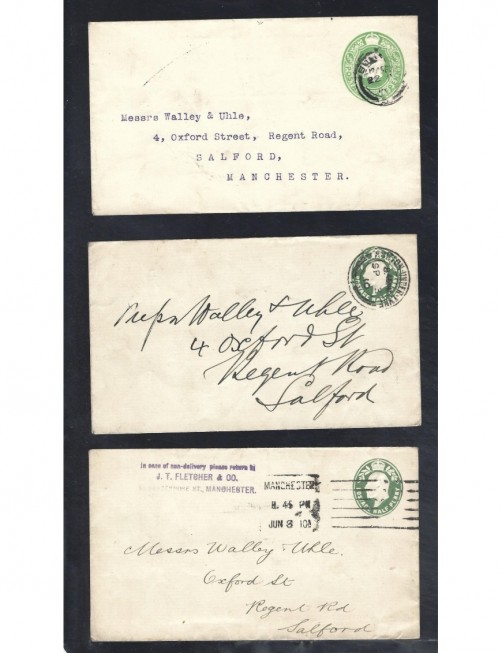 Messrs Walley & Uhle,
4, Oxford Street, Regent Road,
SALFORD,
MANCHESTER.
ASHTON-UNDER-LYNE
SP
Walley & Uhle
4 Oxford St
Regent Road
Salford
In case of non-delivery please return to
J. T. FLETCHER & CO.
ST., MANCHESTER.
MANCHESTER
8. 45 PM
JUN 8 10
HALF PENNY
Messrs Walley & Uhle.
Oxford St
Regent Rd
Salford